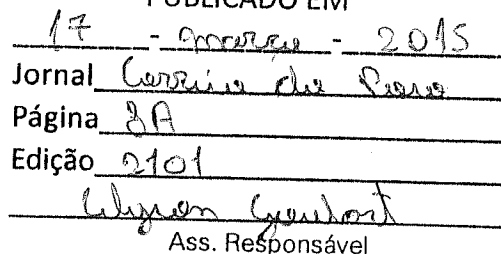 PUBLICADO EM
17 - março - 2015
Jornal Correio do Povo
Página 3A
Edição 2101
Ass. Responsável